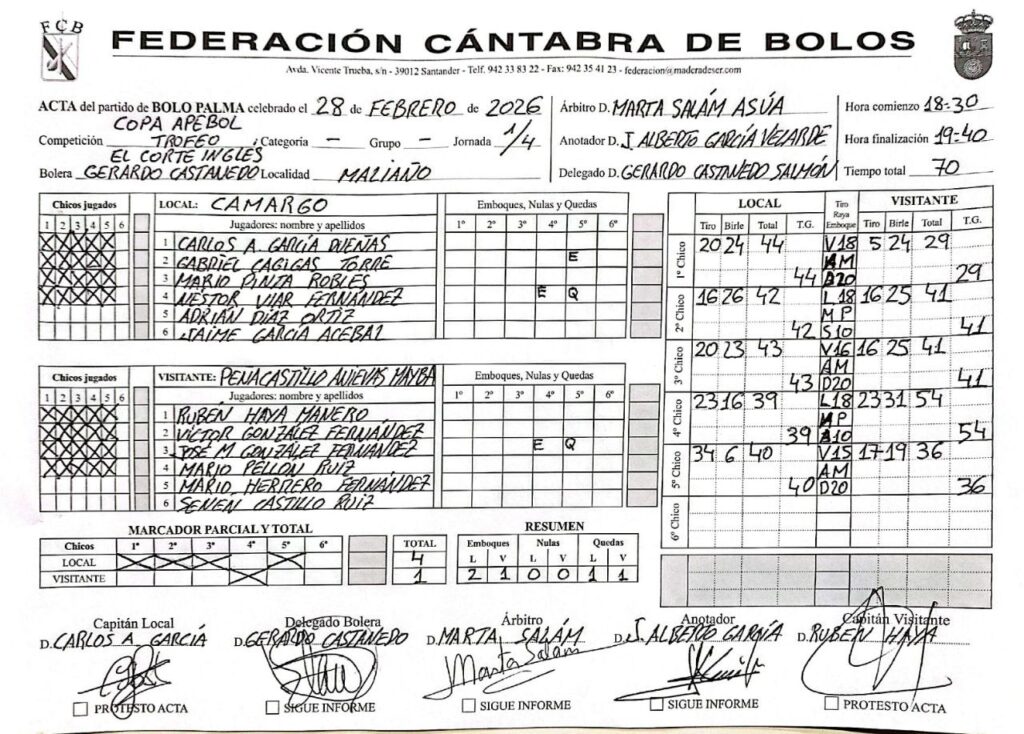 FCB
FEDERACIÓN CÁNTABRA DE BOLOS
Avda. Vicente Trueba, s/n - 39012 Santander - Telf. 942 33 83 22 - Fax: 942 35 41 23 - federacion@maderadeser.com
ACTA del partido de BOLO PALMA celebrado el 28 de FEBRERO de 2026
COPA APEBOL
Competición TROFEO , Categoría - Grupo - Jornada 1/4
EL CORTE INGLES
Bolera GERARDO CASTANEDO Localidad MALIAÑO
Árbitro D. MARTA SALÁM ASÚA
Anotador D. J. ALBERTO GARCÍA VELARDE
Delegado D. GERARDO CASTANEDO SALMÓN
Hora comienzo 18-30
Hora finalización 19-40
Tiempo total 70
Chicos jugados
1 2 3 4 5 6
LOCAL: CAMARGO
Jugadores: nombre y apellidos
Emboques, Nulas y Quedas
1º 2º 3º 4º 5º 6º
1 CARLOS A. GARCÍA DUEÑAS
2 GABRIEL CAGIGAS TORRE E
3 MARIO PINTA ROBLES
4 NÉSTOR VIAR FERNÁNDEZ E Q
5 ADRIÁN DÍAZ ORTIZ
6 JAIME GARCÍA ACEBAL
Chicos jugados
1 2 3 4 5 6
VISITANTE: PEÑACASTILLO ANIEVAS MAYBA
Jugadores: nombre y apellidos
Emboques, Nulas y Quedas
1º 2º 3º 4º 5º 6º
1 RUBÉN HAYA MANERO
2 VÍCTOR GONZÁLEZ FERNÁNDEZ
3 JOSÉ M GONZÁLEZ FERNÁNDEZ E Q
4 MARIO PELLON RUIZ
5 MARIO HERRERO FERNÁNDEZ
6 SENÉN CASTILLO RUIZ
LOCAL Tiro Raya Emboque VISITANTE
Tiro Birle Total T.G. Tiro Birle Total T.G.
1º Chico 20 24 44 V18 5 24 29
AM
44 20 29
2º Chico 16 26 42 L18 16 25 41
MP
42 S10 41
3º Chico 20 23 43 V16 16 25 41
AM
43 D20 41
4º Chico 23 16 39 L18 23 31 54
MP
39 10 54
5º Chico 34 6 40 V15 17 19 36
AM
40 D20 36
6º Chico
MARCADOR PARCIAL Y TOTAL
Chicos 1º 2º 3º 4º 5º 6º TOTAL
LOCAL 4
VISITANTE 1
RESUMEN
Emboques Nulas Quedas
L V L V L V
2 1 0 0 1 1
Capitán Local
D. CARLOS A. GARCÍA
PROTESTO ACTA
Delegado Bolera
D. GERARDO CASTANEDO
SIGUE INFORME
Árbitro
D. MARTA SALÁM
Marta Salám
SIGUE INFORME
Anotador
D. J. ALBERTO GARCÍA
SIGUE INFORME
Capitán Visitante
D. RUBEN HAYA
PROTESTO ACTA